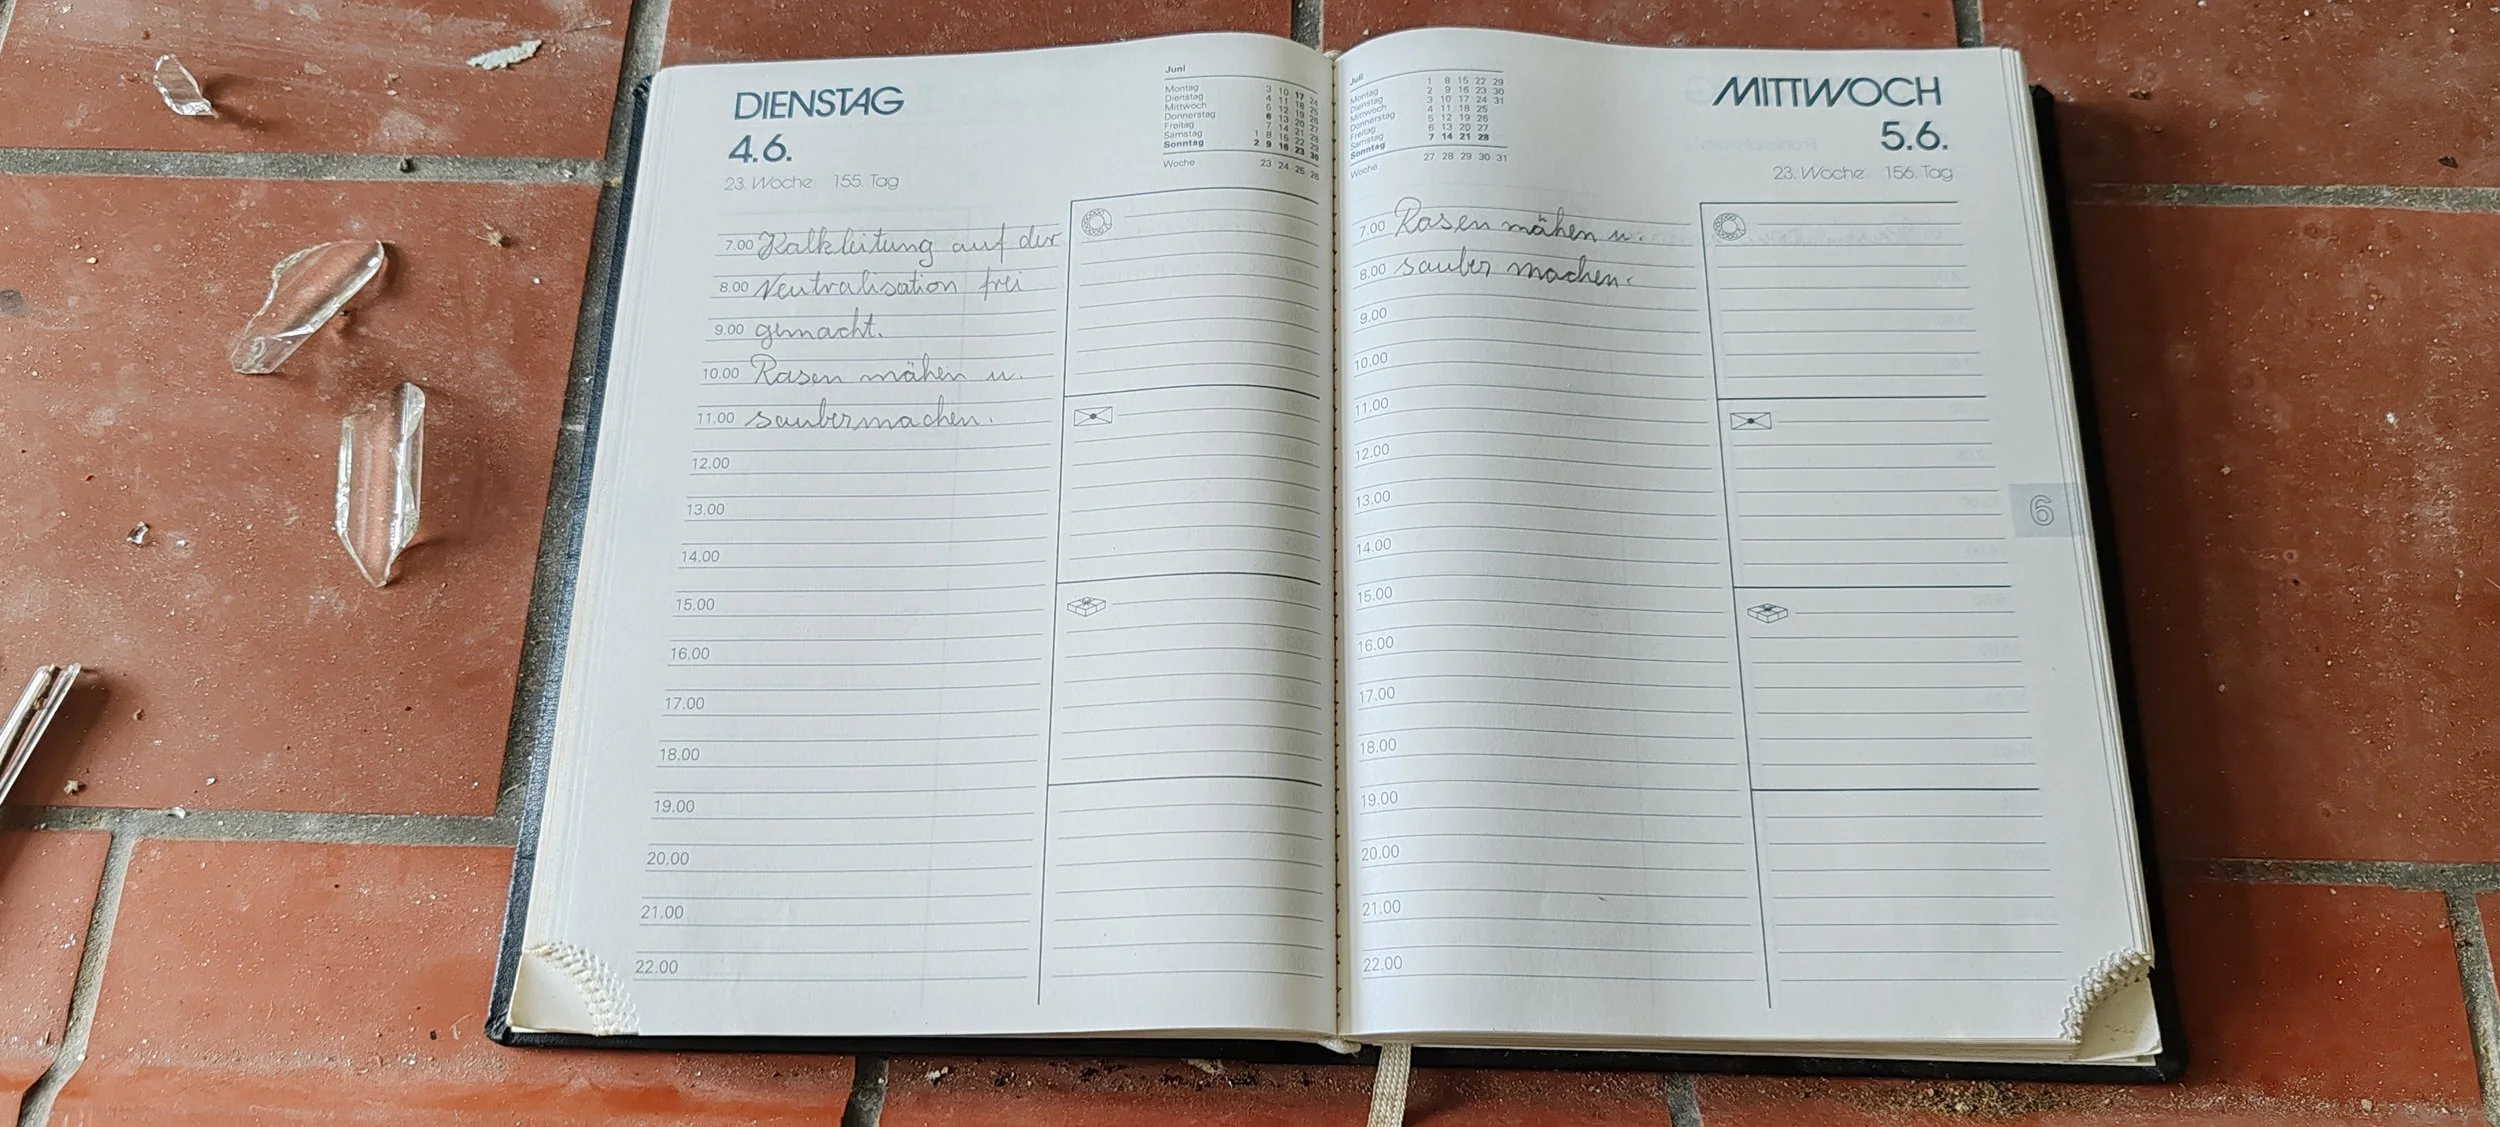 DIENSTAG
4.6.
23. Woche 155. Tag
Juni
Montag 3 10 17 24
Dienstag 4 11 18 25
Mittwoch 5 12 19 26
Donnerstag 6 13 20 27
Freitag 7 14 21 28
Samstag 1 8 15 22 29
Sonntag 2 9 16 23 30
Woche 23 24 25 26
7.00 Kalkleitung auf der
8.00 Neutralisation frei
9.00 gemacht.
10.00 Rasen mähen u.
11.00 saubermachen.
12.00
13.00
14.00
15.00
16.00
17.00
18.00
19.00
20.00
21.00
22.00
Juli
Montag 1 8 15 22 29
Dienstag 2 9 16 23 30
Mittwoch 3 10 17 24 31
Donnerstag 4 11 18 25
Freitag 5 12 19 26
Samstag 6 13 20 27
Sonntag 7 14 21 28
Woche 27 28 29 30 31
MITTWOCH
5.6.
23. Woche 156. Tag
7.00 Rasen mähen u.
8.00 sauber machen.
9.00
10.00
11.00
12.00
13.00
14.00
15.00
16.00
17.00
18.00
19.00
20.00
21.00
22.00
6